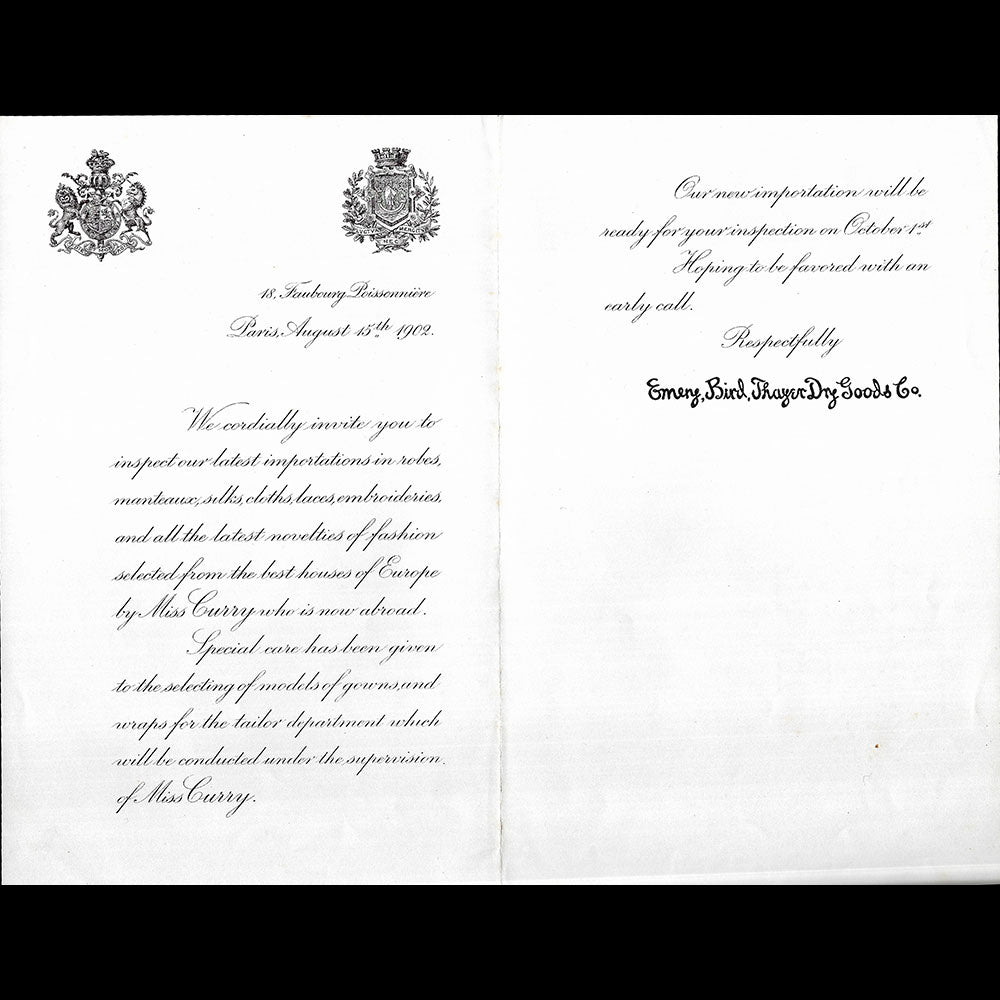 18, Faubourg Poissonnière
Paris, August 15th 1902.
We cordially invite you to
inspect our latest importations in robes,
manteaux, silks, cloths, laces, embroideries,
and all the latest novelties of fashion
selected from the best houses of Europe
by Miss Curry who is now abroad.
Special care has been given
to the selecting of models of gowns, and
wraps for the tailor department which
will be conducted under the supervision
of Miss Curry.
Our new importation will be
ready for your inspection on October 1st
Hoping to be favored with an
early call.
Respectfully
Emery, Bird, Thayer Dry Goods Co.